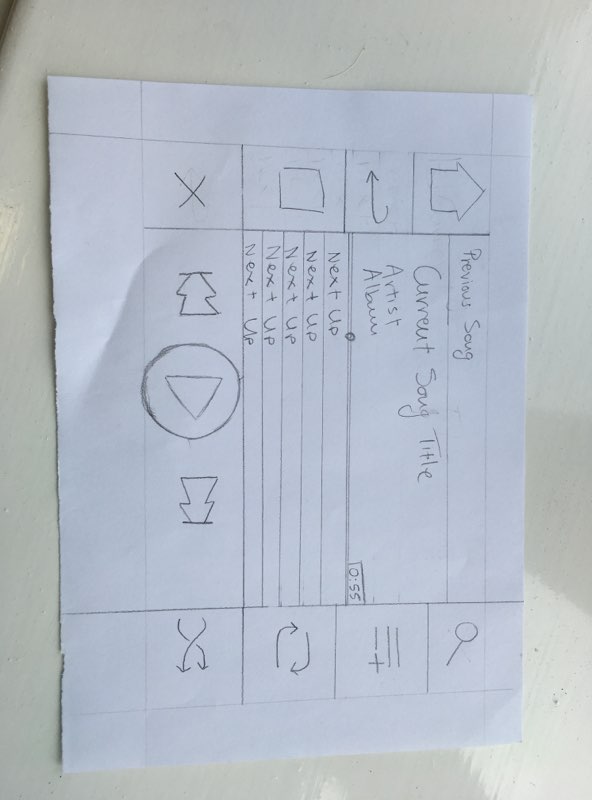 Previous Song
Current Song Title
Artist
Album
0:55
Next Up
Next Up
Next Up
Next Up
Next Up